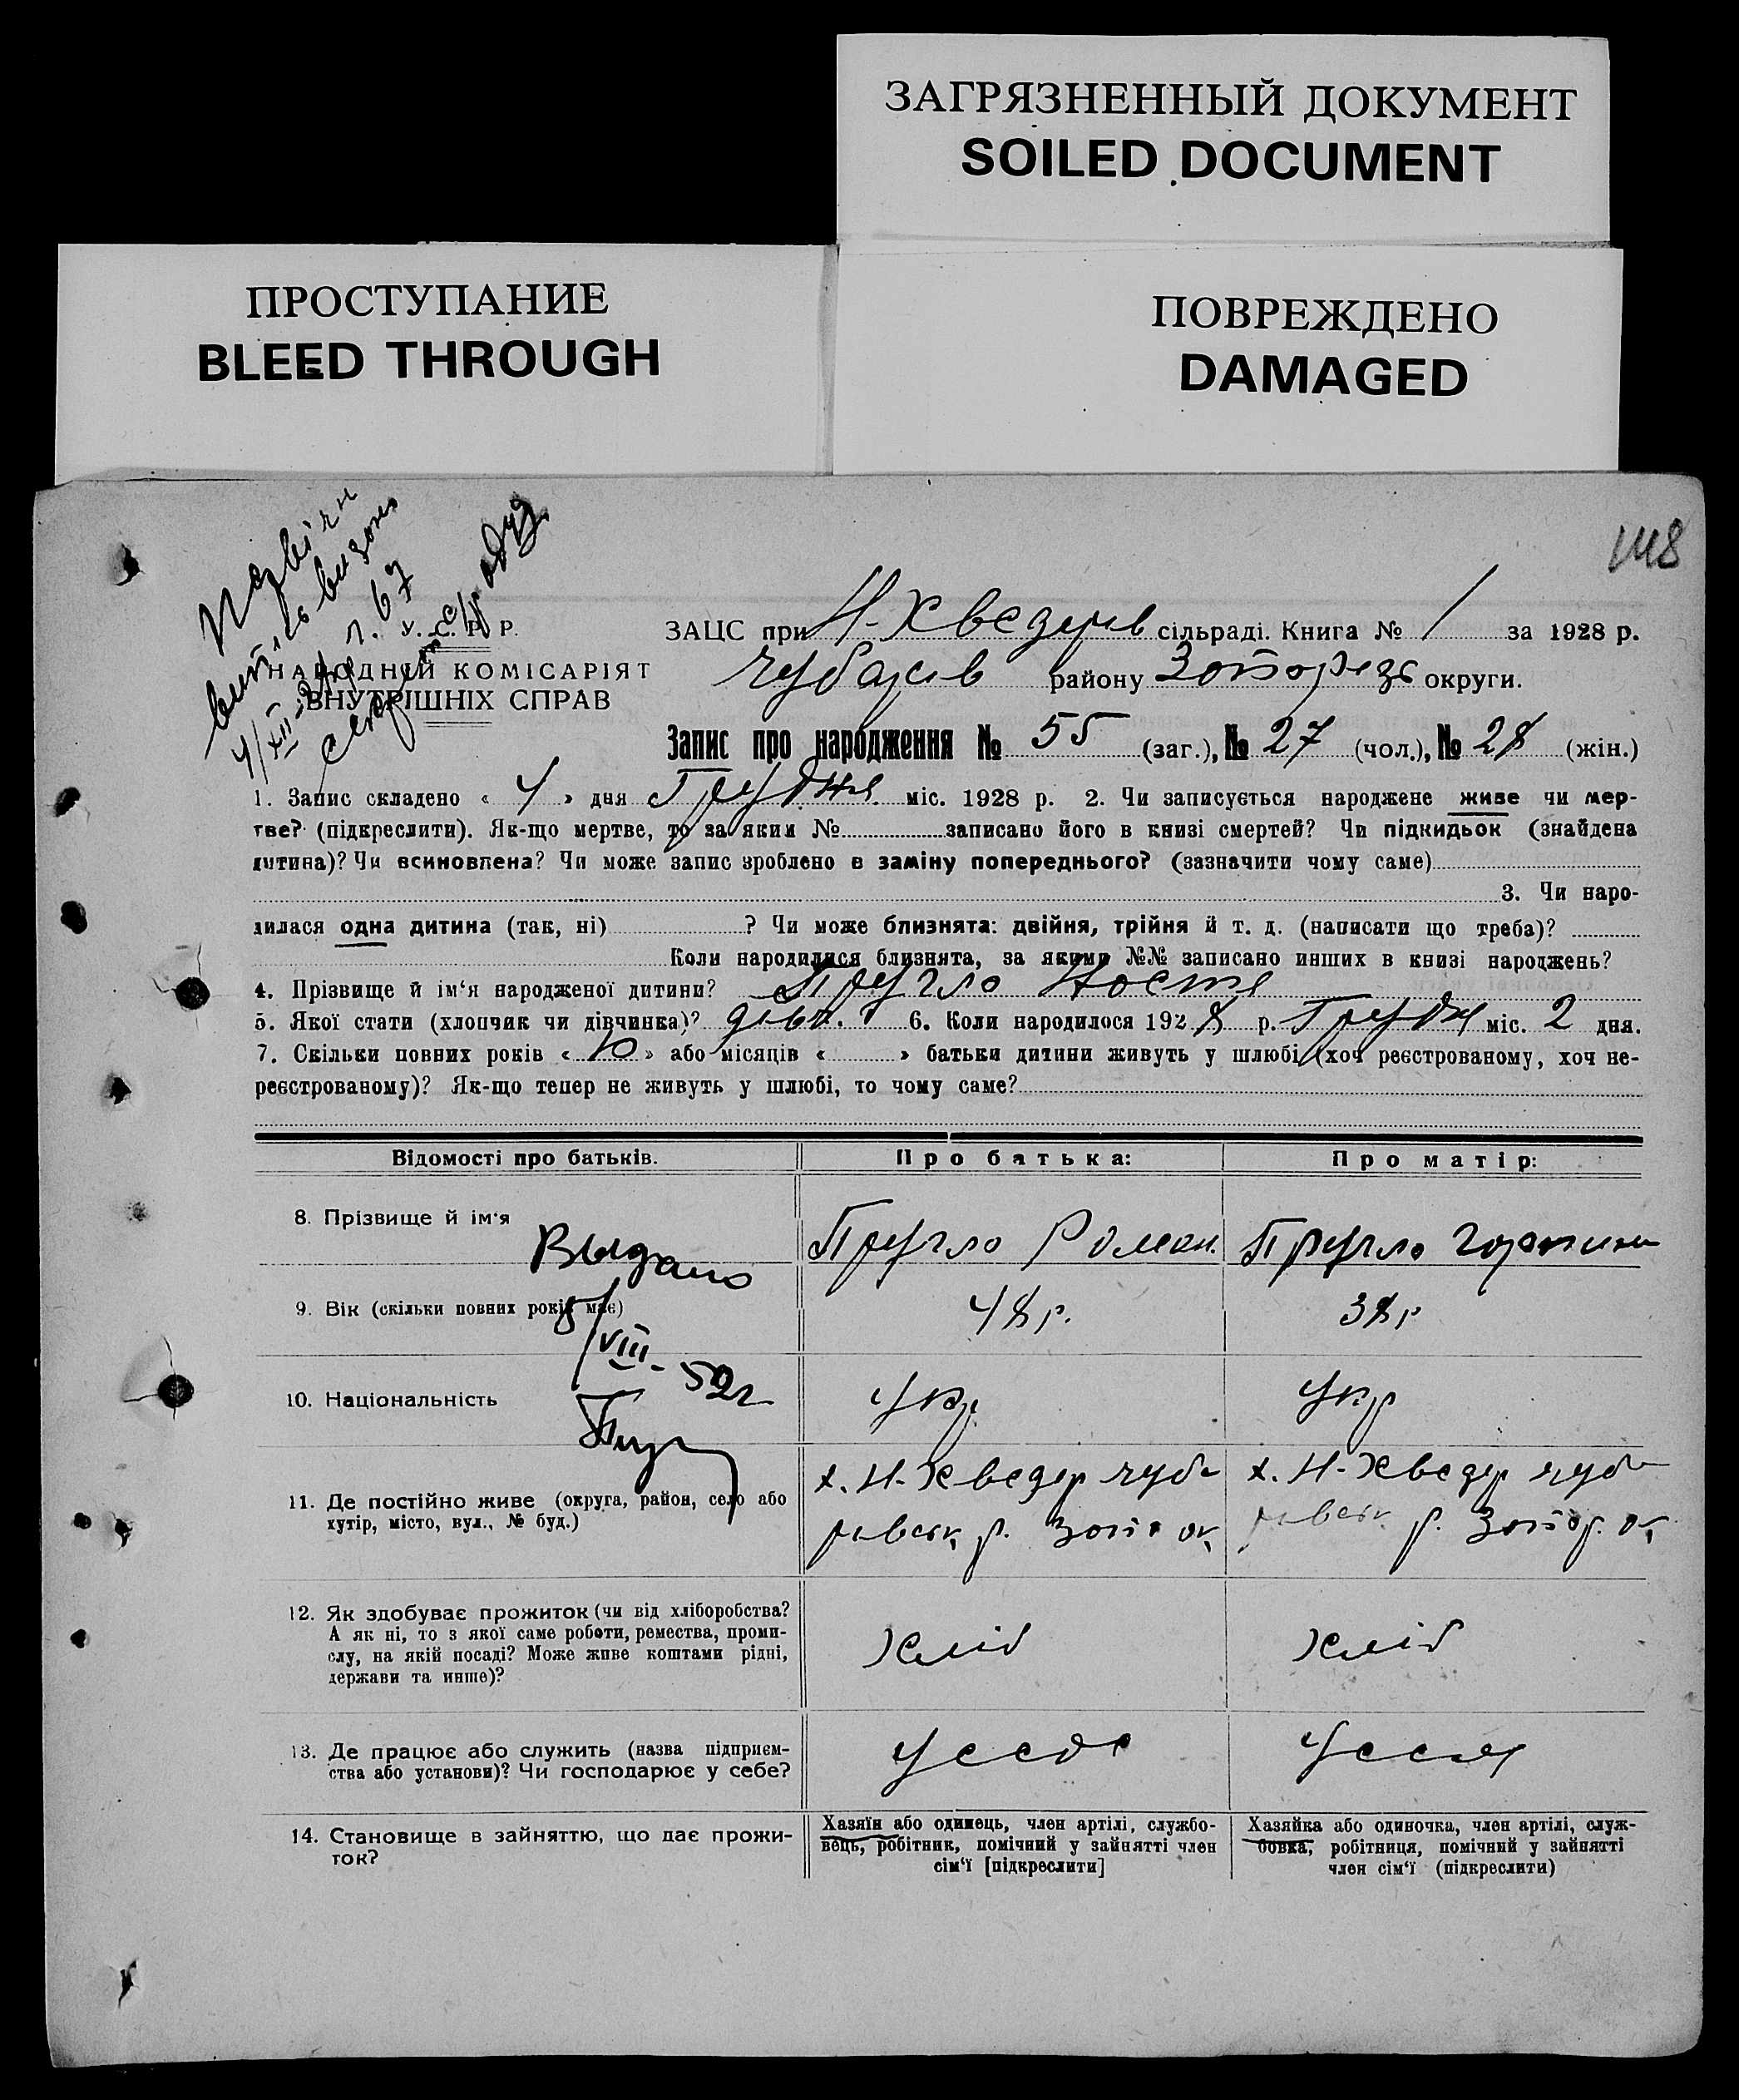 ЗАГРЯЗНЕННЫЙ ДОКУМЕНТ
SOILED DOCUMENT
ПРОСТУПАНИЕ
BLEED THROUGH
ПОВРЕЖДЕНО
DAMAGED
148
У. С. Р. Р.
НАРОДНІЙ КОМІСАРІЯТ
ВНУТРІШНІХ СПРАВ
ЗАЦС при Н-Хведорів сільраді. Книга № 1 за 1928 р.
Чубарів району Запоріз округи.
Запис про народження № 55 (заг.), № 27 (чол.), № 28 (жін.)
1. Запис складено « 4 » дня Грудня міс. 1928 р. 2. Чи записується народжене живе чи мер-
тве? (підкреслити). Як-що мертве, то за яким № записано його в книзі смертей? Чи підкидьок (знайдена
дитина)? Чи всиновлена? Чи може запис зроблено в заміну попереднього? (зазначити чому саме)
3. Чи наро-
дилася одна дитина (так, ні) ? Чи може близнята: двійня, трійня й т. д. (написати що треба)?
Коли народилися близнята, за якими №№ записано инших в книзі народжень?
4. Прізвище й ім‘я народженої дитини?
5. Якої стати (хлопчик чи дівчинка)? дівч. 6. Коли народилося 1928 р. Грудн міс. 2 дня.
7. Скільки повних років « 10 » або місяців « » батьки дитини живуть у шлюбі (хоч реєстрованому, хоч не-
реєстрованому)? Як-що тепер не живуть у шлюбі, то чому саме?
Відомості про батьків. Про батька: Про матір:
8. Прізвище й ім‘я Роман.
Выдано
9. Вік (скільки повних років має) 48 р. 38 р
5/VIII-52г
10. Національність Укр Укр
11. Де постійно живе (округа, район, село або х. Н-Хведор Чуба х. Н-Хведор Чуба
хутір, місто, вул., № буд.) рівськ. р. Запо ок, рівськ. р. Запор. ок,
12. Як здобуває прожиток (чи від хліборобства?
А як ні, то з якої саме роботи, ремества, проми- Хліб Хліб
слу, на якій посаді? Може живе коштами рідні,
держави та инше)?
13. Де працює або служить (назва підприєм- У себе У себе
ства або установи)? Чи господарює у себе?
14. Становище в зайняттю, що дає прожи-
ток?
Хазяїн або одинець, член артілі, службо-
вець, робітник, помічний у зайнятті член
сім‘ї [підкреслити]
Хазяйка або одиночка, член артілі, служ-
бовка, робітниця, помічний у зайнятті
член сім‘ї (підкреслити)